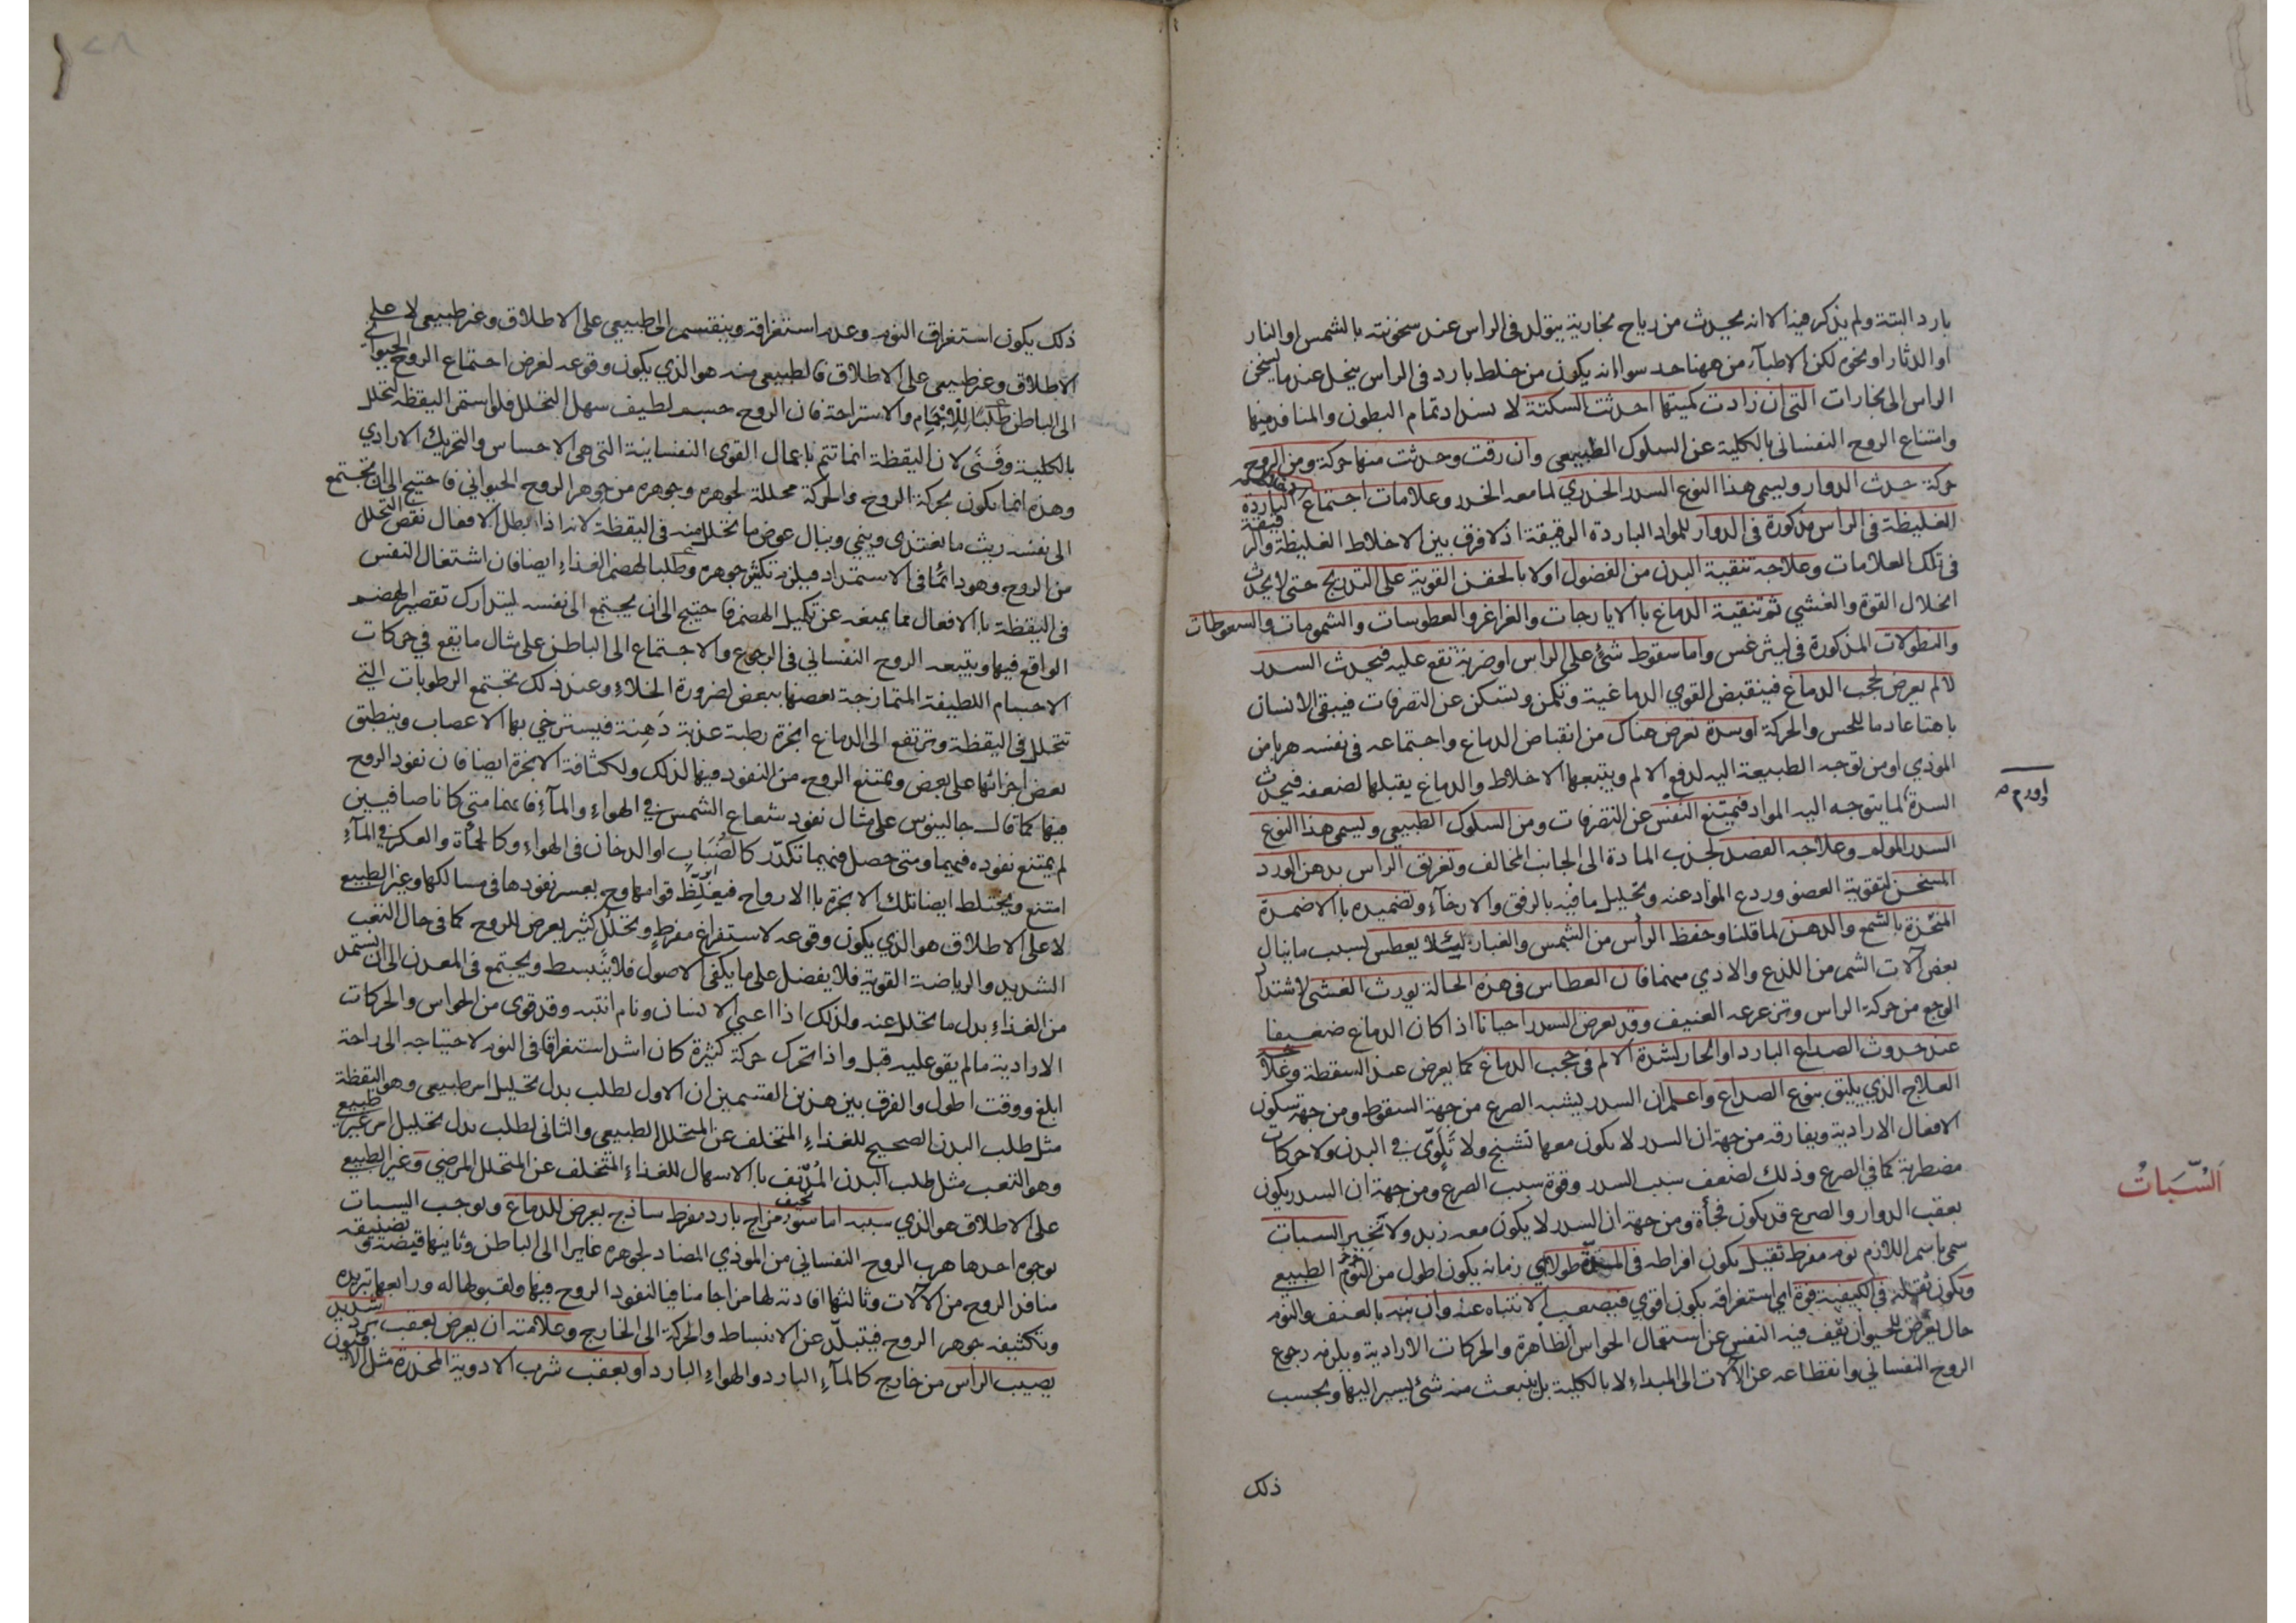 بارد البتة ولم يذكر فيه الا انه يحدث من رياح بخارية يتولد في الراس عند سخونته بالشمس او النار
او الدثار او نحوه لكن الاطباء من ههنا حدسوا انه يكون من خلط بارد في الراس ينحل عند ما يسخن
الراس الى بخارات التي ان زادت كميتها احدثت السكتة لانسداد تمام البطون والمنافذ منها
وامتناع الروح النفساني بالكلية عن السلوك الطبيعي وان رقت وحدثت منها حركة ومن الروح
حركة حدث الدوار ويسمى هذا النوع السدر الخدري لما معه الخدر وعلامات اجتماع الباردة
الغليظة في الراس مذكورة في الدوار للمواد الباردة الرقيقة اذ لا فرق بين الاخلاط الغليظة والرقيقة
في تلك العلامات وعلاجه تنقية البدن من الفضول اولا بالحقن القوية على التدريج حتى لا يحدث
انحلال القوة والغشي ثم تنقية الدماغ بالايارجات والغراغر والعطوسات والشمومات والسعوطات
والنطولات المذكورة في ليثرغس واما سقوط شئ على الراس او ضربة تقع عليه فيحدث السدر
لالم يعرض لحجب الدماغ فينقبض القوي الدماغية وتكمن وتسكن عن التصرفات فيبقى الانسان
باهتا عادما للحس والحركة او سدة تعرض هناك من انقباض الدماغ واجتماعه في نفسه هربا من
الموذي او من توجه الطبيعة اليه لدفع الالم ويتبعها الاخلاط والدماغ يقبلها لضعفه فيحدث
او ورم
السدة لما يتوجه اليه المواد فيمتنع النفس عن التصرفات ومن السلوك الطبيعي ويسمى هذا النوع
السدر المولم وعلاجه الفصد لجذب المادة الى الجانب المخالف وتغريق الراس بدهن الورد
المسخن لتقوية العضو وردع المواد عنه وتحليل ما فيه بالرفق والارخاء وتضميده بالاضمدة
المتخذة بالشمع والدهن لما قلنا وحفظ الرأس من الشمس والغبار لئلا يعطس بسبب ما ينال
بعض آلات الشم من اللذع والاذي منهما فان العطاس في هذه الحالة يورث الغشي لاشتداد
الوجع من حركة الراس وتزعزعه العنيف وقد يعرض السدر احيانا اذا كان الدماغ ضعيفا
عند حدوث الصداع البارد او الحار لشدة الالم في حجب الدماغ كما يعرض عند السقطة وعلاجه
العلاج الذي يليق بنوع الصداع واعلم ان السدر يشبه الصرع من جهة السقوط ومن جهة سكون
الافعال الارادية ويفارقه من جهة ان السدر لا يكون معها تشنج ولا تلوّي في البدن ولا حركات
مضطربة كما في الصرع وذلك لضعف سبب السدر وقوة سبب الصرع ومن جهة ان السدر يكون
السُّبَاتُ
بعقب الدوار والصرع قد يكون فجأة ومن جهة ان السدر لا يكون معه زبد ولا نخير السبات
سمي باسم اللازم نوم مفرط ثقيل يكون افراطه في المدّة طولا اي زمانه يكون اطول من النوم الطبيعي
ويكون ثقله في الكيفية قوة اي استغراقه يكون اقوي فيصعب الانتباه عنه وان نبه بالعنف والنوم
حال يعرض للحيوان يقف فيه النفس عن استعمال الحواس الظاهرة والحركات الارادية ويلزمه رجوع
الروح النفساني وانقطاعه عن الآلات الى المبداء لا بالكلية بل ينبعث منه شئ يسير اليها وبحسب
ذلك
ذلك يكون استغراق النوم وعدم استغراقه وينقسم الى طبيعي على الاطلاق وغير طبيعي لا على
الاطلاق وغير طبيعي على الاطلاق فالطبيعي منه هو الذي يكون وقوعه لغرض اجتماع الروح الحيواني
الى الباطن طلبًا للاجْمَام والاستراحة فان الروح جسم لطيف سهل التحلل فلو استمر اليقظة لتحلل
بالكلية وفَنَى لان اليقظة انما تتم باعمال القوى النفسانية التي هي الاحساس والتحريك الارادي
وهذه انما يكون بحركة الروح والحركة محللة لجوهره وجوهره من جوهر الروح الحيواني فاحتيج الى ان تجتمع
الى نفسه ريث ما يغتذي وينمي وينال عوض ما تحلل منه في اليقظة لانه اذا بطل الافعال نقص التحلل
من الروح وهو دائمًا في الاستمداد فيلزم تكثير جوهره وطلبا لهضم الغذاء ايضا فان اشتغال النفس
في اليقظة بالافعال مما يمنعه عن تكميل الهضم فاحتيج الى ان يجتمع الى نفسه ليتدارك تقصير الهضم
الواقع فيها ويتبعه الروح النفساني في الرجوع والاجتماع الى الباطن على مثال ما يقع في حركات
الاجسام اللطيفة المتمازجة بعضها ببعض لضرورة الخلاء وعند ذلك تجتمع الرطوبات التي
تتحلل في اليقظة وترتفع الى الدماغ ابخرة رطبة عذبة دَهِنة فيسترخي بها الاعصاب وينطبق
بعض اجزائها على بعض ويمتنع الروح من النفوذ فيها لذلك ولكثافة الابخرة ايضا فان نفوذ الروح
فيها كما قال جالينوس على مثال نفوذ شعاع الشمس في الهواء والماء فانهما متى كانا صافيين
لم يمتنع نفوذه فيهما ومتى حصل فيهما تكدّر كالضَبَاب او الدخان في الهواء وكالحمأة والعكر في الماء
امتنع ويختلط ايضا تلك الابخرة بالارواح فيغلّظ قوامها وح يعسر نفوذها في مسالكها وغير الطبيعي
لا على الاطلاق هو الذي يكون وقوعه لاستفراغ مفرطٍ وتحللٍ كثير يعرض للروح كما في حال التعب
الشديد والرياضة القوية فلا يفضل على ما يكفي الاصول فلا ينبسط ويجتمع في المعدن الى ان يستمد
من الغذاء بدل ما تحلل عنه ولذلك اذا اعيي الانسان ونام انتبه وقد قوي من الحواس والحركات
الارادية ما لم يقو عليه قبل واذا تحرك حركة كثيرة كان اشد استغراقا في النوم لاحتياجه الى راحة
ابلغ ووقت اطول والفرق بين هذين القسمين ان الاول لطلب بدل تحليل امر طبيعي وهو اليقظة
مثل طلب البدن الصحيح للغذاء المتخلف عن المتحلل الطبيعي والثاني لطلب بدل تحليل امر غير طبيعي
وهو التعب مثل طلب البدن المُدْنف بالاسهال للغذاء المتخلف عن المتحلل المرضي وغير الطبيعي
على الاطلاق هو الذي سببه اما سوء مزاج بارد مفرط ساذج يعرض للدماغ ويوجب السبات
بوجوه احدها هرب الروح النفساني من الموذي المضاد لجوهره غايرا الى الباطن وثانيها قبضه وتضييقه
منافذ الروح من الآلات وثالثها افادته لها مزاجا منافيا لنفوذ الروح فيها ولقبولها له ورابعها تبريده
وتكثيفه جوهر الروح فيتبلّد عن الانبساط والحركة الى الخارج وعلامته ان يعرض بعقب برد شديد
يصيب الراس من خارج كالماء البارد والهواء البارد او بعقب شرب الادوية المخدرة مثل الافيون